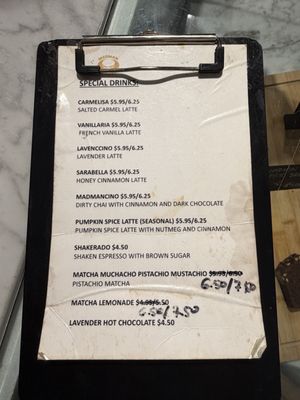 SPECIAL DRINKS:
CARMELISA $5.95/6.25
SALTED CARMEL LATTE
VANILLARIA $5.95/6.25
FRENCH VANILLA LATTE
LAVENCCINO $5.95/6.25
LAVENDER LATTE
SARABELLA $5.95/6.25
HONEY CINNAMON LATTE
MADMANCINO $5.95/6.25
DIRTY CHAI WITH CINNAMON AND DARK CHOCOLATE
PUMPKIN SPICE LATTE (SEASONAL) $5.95/6.25
PUMPKIN SPICE LATTE WITH NUTMEG AND CINNAMON
SHAKERADO $4.50
SHAKEN ESPRESSO WITH BROWN SUGAR
MATCHA MUCHACHO PISTACHIO MUSTACHIO $5.95/6.50
PISTACHIO MATCHA 6.50/7.50
MATCHA LEMONADE $4.98/6.50
6.50/7.50
LAVENDER HOT CHOCOLATE $4.50